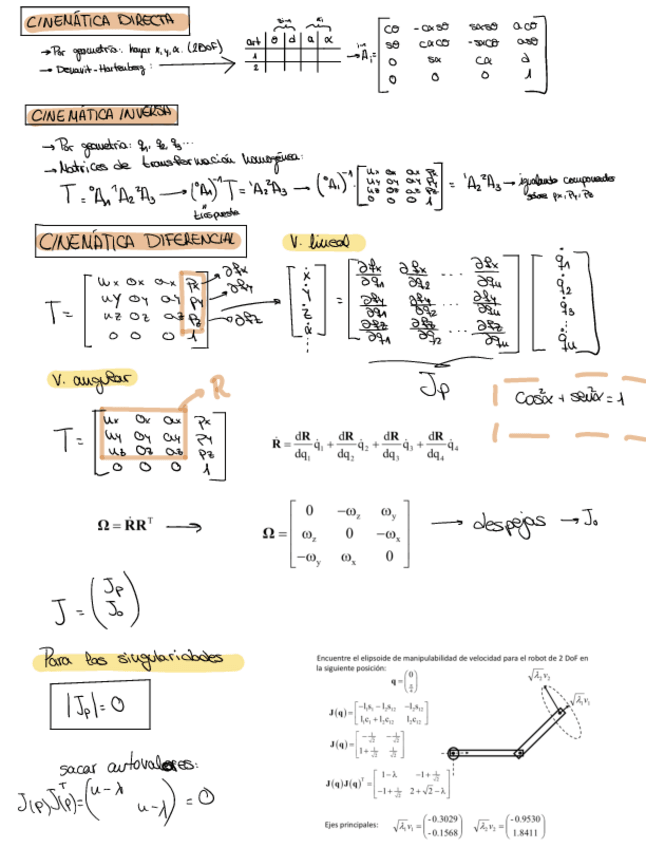 CINEMÁTICA DIRECTA
→ Por geometría: hayar x, y, α. (2DoF)
→ Denavit-Hartenberg: → art θ d a α
1
2
→ ⁱ⁻¹Aᵢ = [ cθ -cαsθ sαsθ acθ
sθ cαcθ -sαcθ asθ
0 sα cα d
0 0 0 1 ]
CINEMÁTICA INVERSA
→ Por geometría: q₁, q₂, q₃...
→ Matrices de transformación homogénea:
T = ⁰A₁ ¹A₂ ²A₃ → (⁰A₁)⁻¹ T = ¹A₂ ²A₃ → (⁰A₁)⁻¹ · [ ux ox ax px
uy oy ay py
uz oz az pz
0 0 0 1 ] = ¹A₂ ²A₃ → igualando componentes
sobre px, py, pz
traspuesta
CINEMÁTICA DIFERENCIAL
V. lineal
T = [ ux ox ax px → ∂fx
uy oy ay py → ∂fy
uz oz az pz → ∂fz
0 0 0 1 ]
[ ẋ ẏ ż α̇ ⋮ ] = [ ∂fx/∂q1 ∂fx/∂q2 ... ∂fx/∂qn
∂fy/∂q1 ∂fy/∂q2 ... ∂fy/∂qn
∂fz/∂q1 ∂fz/∂q2 ... ∂fz/∂qn ] [ q̇1 q̇2 q̇3 q̇n ]
Jp
V. angular
R
cos²α + sen²α = 1
T = [ ux ox ax px
uy oy ay py
uz oz az pz
0 0 0 1 ]
Ṙ = dR/dq₁ q̇₁ + dR/dq₂ q̇₂ + dR/dq₃ q̇₃ + dR/dq₄ q̇₄
Ω = ṘRᵀ →
Ω = [ 0 -ω_z ω_y
ω_z 0 -ω_x
-ω_y ω_x 0 ]
→ despejas → Jo
J = ( Jp
Jo )
Para las singularidades
|Jp| = 0
sacar autovalores:
J(p)J(p)ᵀ = ( u-λ
u-λ ) = 0
Encuentre el elipsoide de manipulabilidad de velocidad para el robot de 2 DoF en
la siguiente posición:
q = ( 0
π/4 )
J(q) = [ -l₁s₁ - l₂s₁₂ -l₂s₁₂
l₁c₁ + l₂c₁₂ l₂c₁₂ ]
J(q) = [ -1/√2 -1/√2
1+1/√2 1/√2 ]
J(q)J(q)ᵀ = [ 1-λ -1+1/√2
-1+1/√2 2+√2-λ ]
√λ₂ v₂
√λ₁ v₁
Ejes principales: √λ₁ v₁ = ( -0.3029
-0.1568 ) √λ₂ v₂ = ( -0.9530
1.8411 )